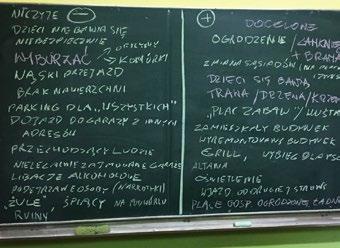 NICZYJE ⊖
DZIECI NIE BAWIĄ SIĘ
NIEBEZPIECZNIE
WYBURZAĆ OFICYNY → KOMÓRKI
WĄSKI PRZEJAZD
BRAK NAWIERZCHNI
PARKING DLA „WSZYSTKICH"
DOJAZD DO GARAŻY Z INNYCH
ADRESÓW
PRZECHODZĄCY LUDZIE
NIELEGALNIE ZAJMOWANE GARAŻE
LIBACJE ALKOHOLOWE
PODEJRZANE OSOBY (NARKOTYKI)
„ŻULE" ŚPIĄCY NA PODWÓRKU
RUINY
⊕ DOCELOWE
OGRODZENIE / ZAMKNIĘ
+ BRAMA
ZMIANA SĄSIADÓW
DZIECI SIĘ BAWIĄ
TRAWA / DRZEWA / KRZEW
„PLAC ZABAW" / HUŚTA
ZAMIESZKAŁY BUDYNEK
WYREMONTOWANY BUDYNEK
GRILL, WYBIEG DLA PSÓ
ALTANA
OŚWIETLENIE
WJAZD OD DRUGIEJ STRONY
PLACE GOSP. OGRODZONE ŁADN